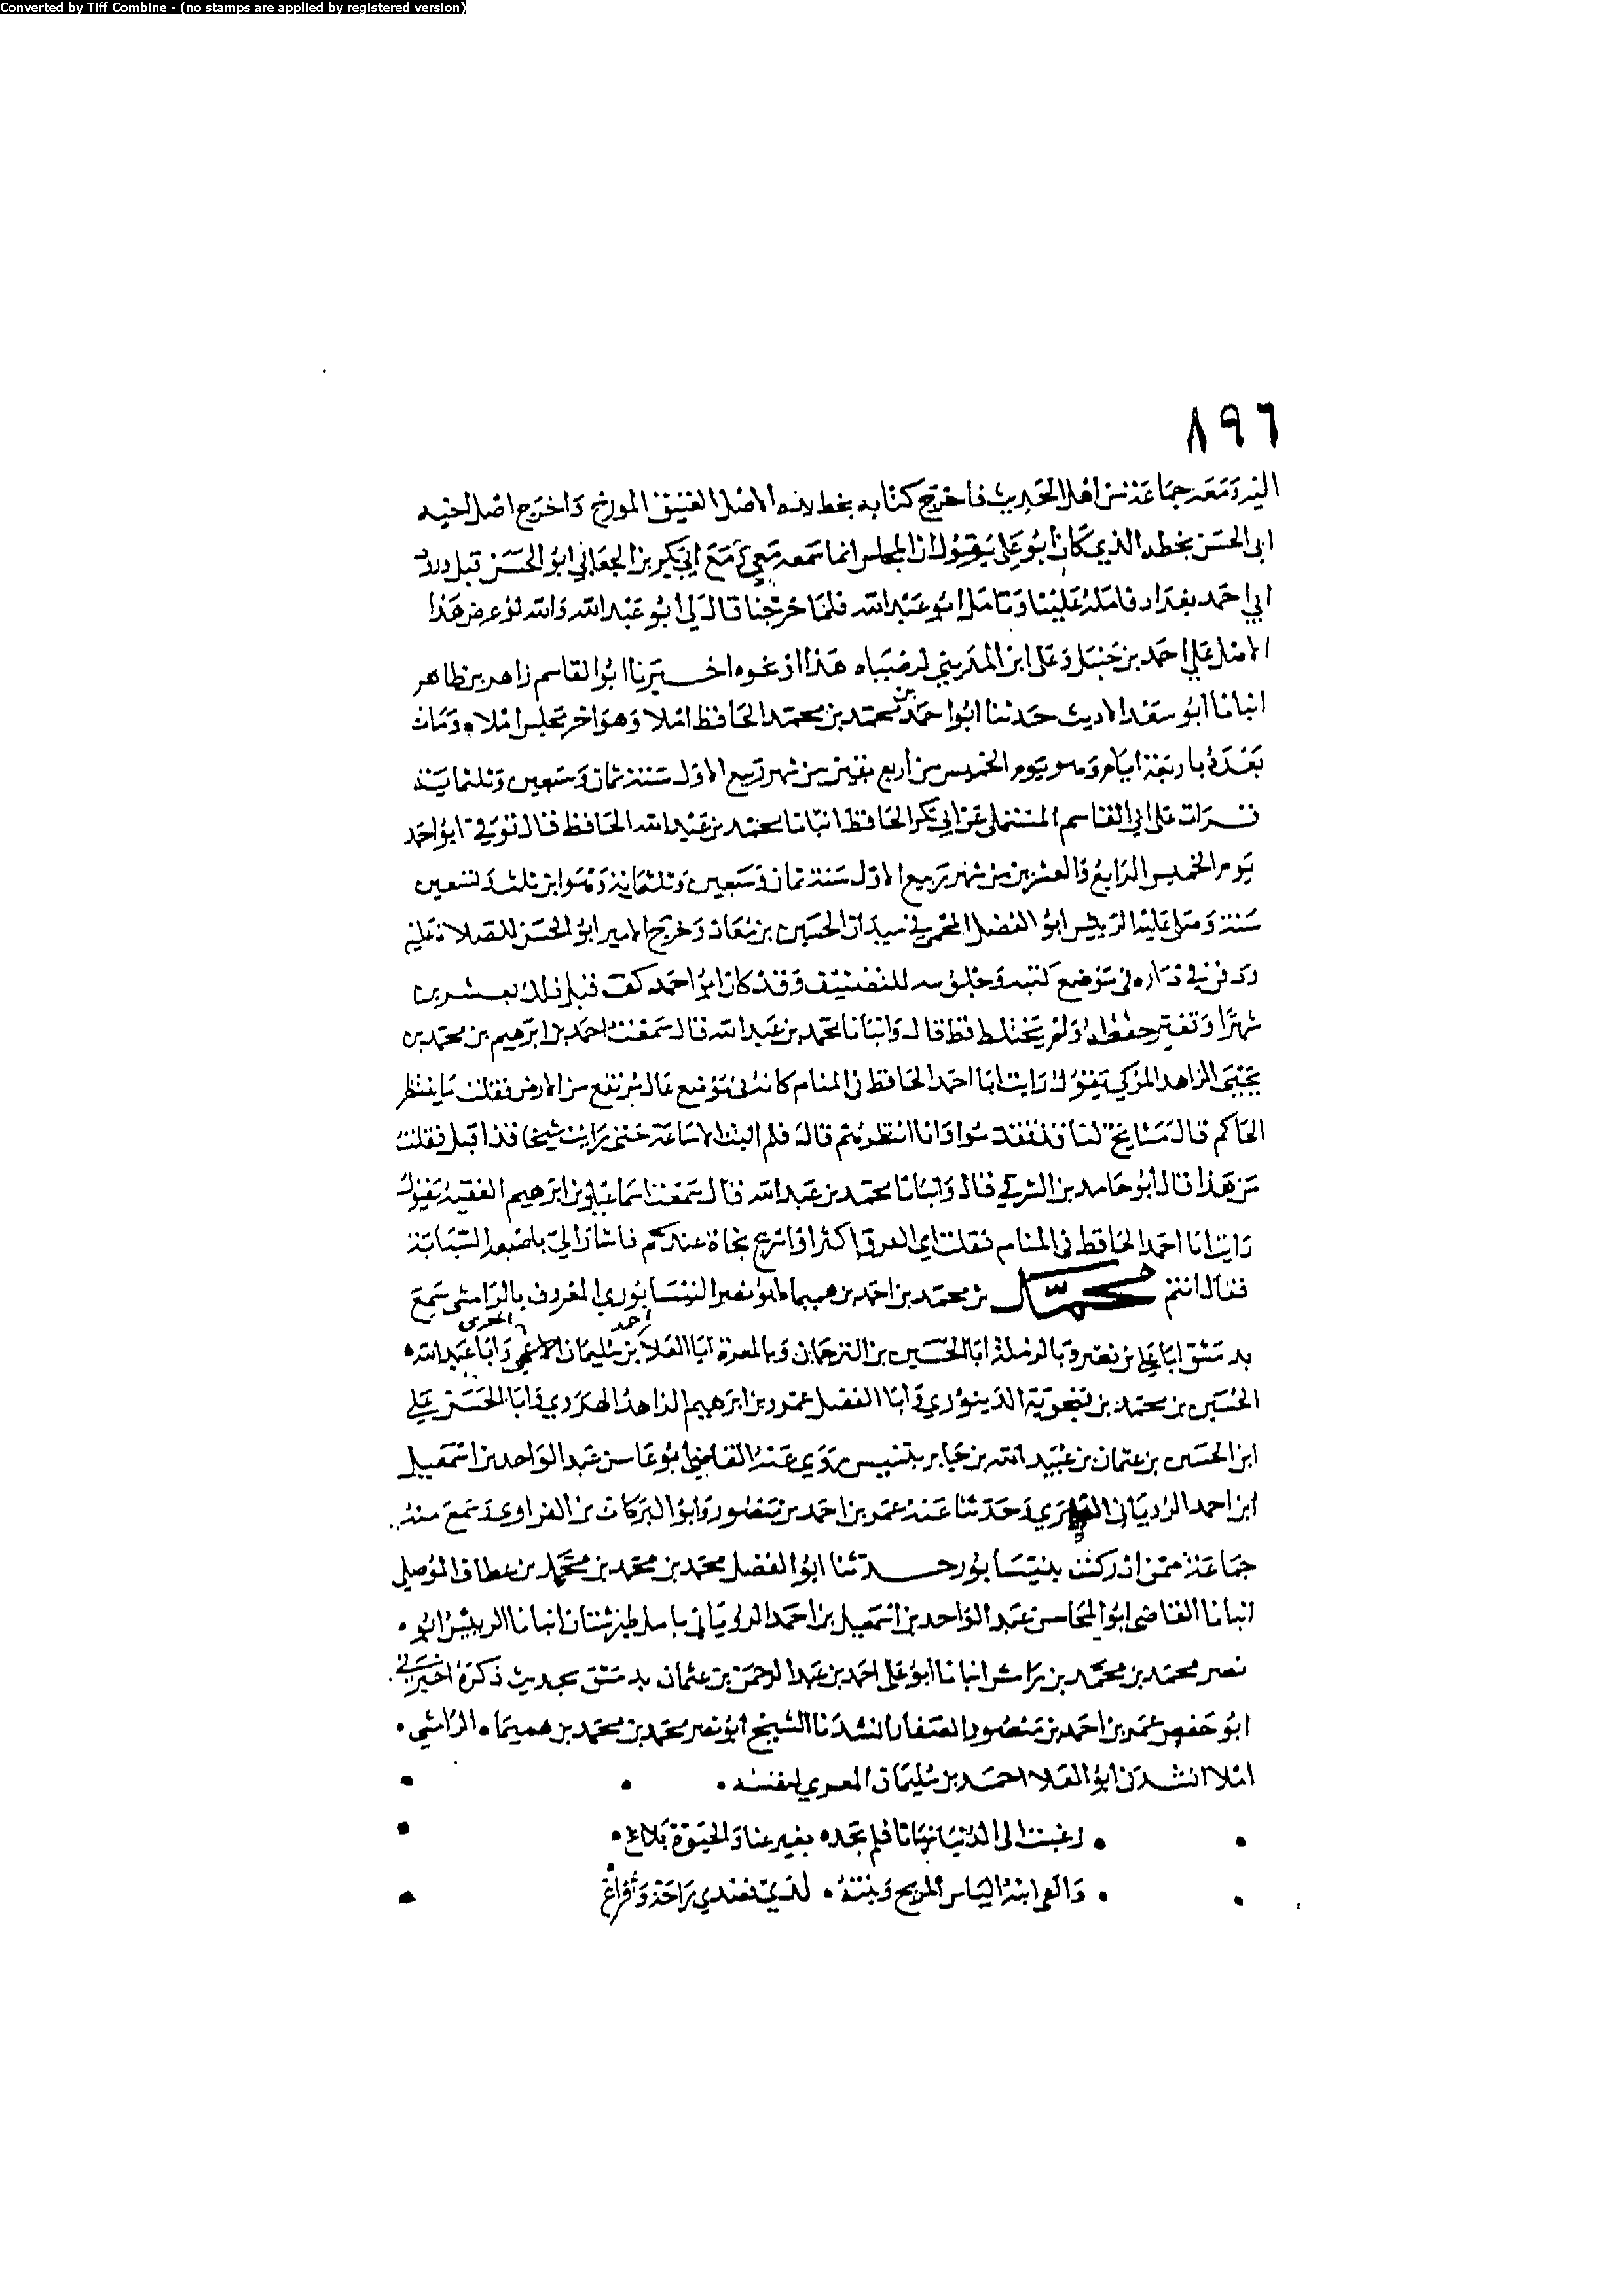 Converted by Tiff Combine - (no stamps are applied by registered version)
٨٩٦
اليه ومعه جماعة من اهل الحديث فاخرج كتابه بخط يده الاصل العتيق المورخ واخرج اصل اخيه
ابي الحسن بخطه الذي كان ابو علي يقول ان المجلس انما سمعه معي مع ابي بكر بن الجعابي ابو الحسن قبل ورود
ابي احمد بغداد فاملاه علينا وتامل ابو عبد الله فلما خرجنا قال لي ابو عبد الله والله لو عرض هذا
الاصل على احمد بن حنبل وعلى ابن المديني لرضياه هذا او نحوه اخبرنا ابو القاسم زاهر بن طاهر
انبانا ابو سعد الاديب حدثنا ابو احمد محمد بن محمد الحافظ املا وهو اخر مجلس املاه ومات
بعده باربعة ايام وهو يوم الخميس من اربع بقين من شهر ربيع الاول سنة ثمان وسبعين وثلثماية
قرات على ابي القاسم المستملي عن ابي بكر الحافظ انبانا محمد بن عبد الله الحافظ قال توفي ابو احمد
يوم الخميس الرابع والعشرين من شهر ربيع الاول سنة ثمان وسبعين وثلثماية وهو ابن ثلث وتسعين
سنة وصلى عليه الرييس ابو الفضل في ميدان الحسين بن معاذ وخرج الامير ابو الحسن للصلاة عليه
ودفن في داره في موضع كتبه وجلوسه للتصنيف وقد كان ابو احمد كف قبل ذلك بعشرين
شهرا وتغير حفظه ولم يختلط قط قال وانبانا محمد بن عبد الله قال سمعت احمد بن ابرهيم بن محمد بن
يحيى الزاهد المزكي يقول رايت ابا احمد الحافظ في المنام كانه في موضع عال مرتفع من الارض فقلت ما ينتظر
الحاكم قال مشايخ لنا قد فقدوا وانا انتظرهم قال فلم البث الا ساعة حتى رايت شيخا قد اقبل فقلت
من هذا قال ابو حامد بن الشرقي قال وانبانا محمد بن عبد الله قال سمعت اسماعيل بن ابرهيم الفقيه يقول
رايت ابا احمد الحافظ في المنام فقلت اي الفرق اكثر او اسرع نجاة عندكم فاشار الي باصبعه السبابة
فقال انتم محمد بن محمد بن احمد بن هميماه ابو نصر النيسابوري المعروف بالرامشي سمع
احمد المعري
بدمشق ابا علي بن نصر وبالرملة ابا الحسين بن الترجمان وبالمعرة ابا العلا بن سليمان الاعمى وابا عبد الله
الحسين بن محمد بن فنجويه الدينوري وابا الفضل عمر بن ابرهيم الزاهد الهروي وابا الحسن علي
ابن الحسين بن عثمان بن عبيد الله بن جابر بتنيس روى عنه القاضي ابو عاسن عبد الواحد بن اسمعيل
ابن احمد الروياني الطبري وحدثنا عنه عمر بن احمد بن منصور وابو البركات بن الفراوي وسمع منه
جماعة ممن ادركت بنيسابور حدثنا ابو الفضل محمد بن محمد بن محمد بن عطاف الموصلي
انبانا القاضي ابو المحاسن عبد الواحد بن اسمعيل بن احمد الروياني بامل طبرستان انبانا الرييس ابو
نصر محمد بن محمد بن رامش انبانا ابو علي احمد بن عبد الرحمن بن عثمان بدمشق بحديث ذكره اخبرني
ابو حفص عمر بن احمد بن منصور الصفار انشدنا الشيخ ابو نصر محمد بن محمد بن هميماه الرامشي
املا انشدني ابو العلا احمد بن سليمان المعري لنفسه
رغبت الى الدنيا زمانا فلم تجد بغير عنا والحيوة بلاغ
والقى ابنه الياس المريح وبنته لدي فعندي راحة وفراغ